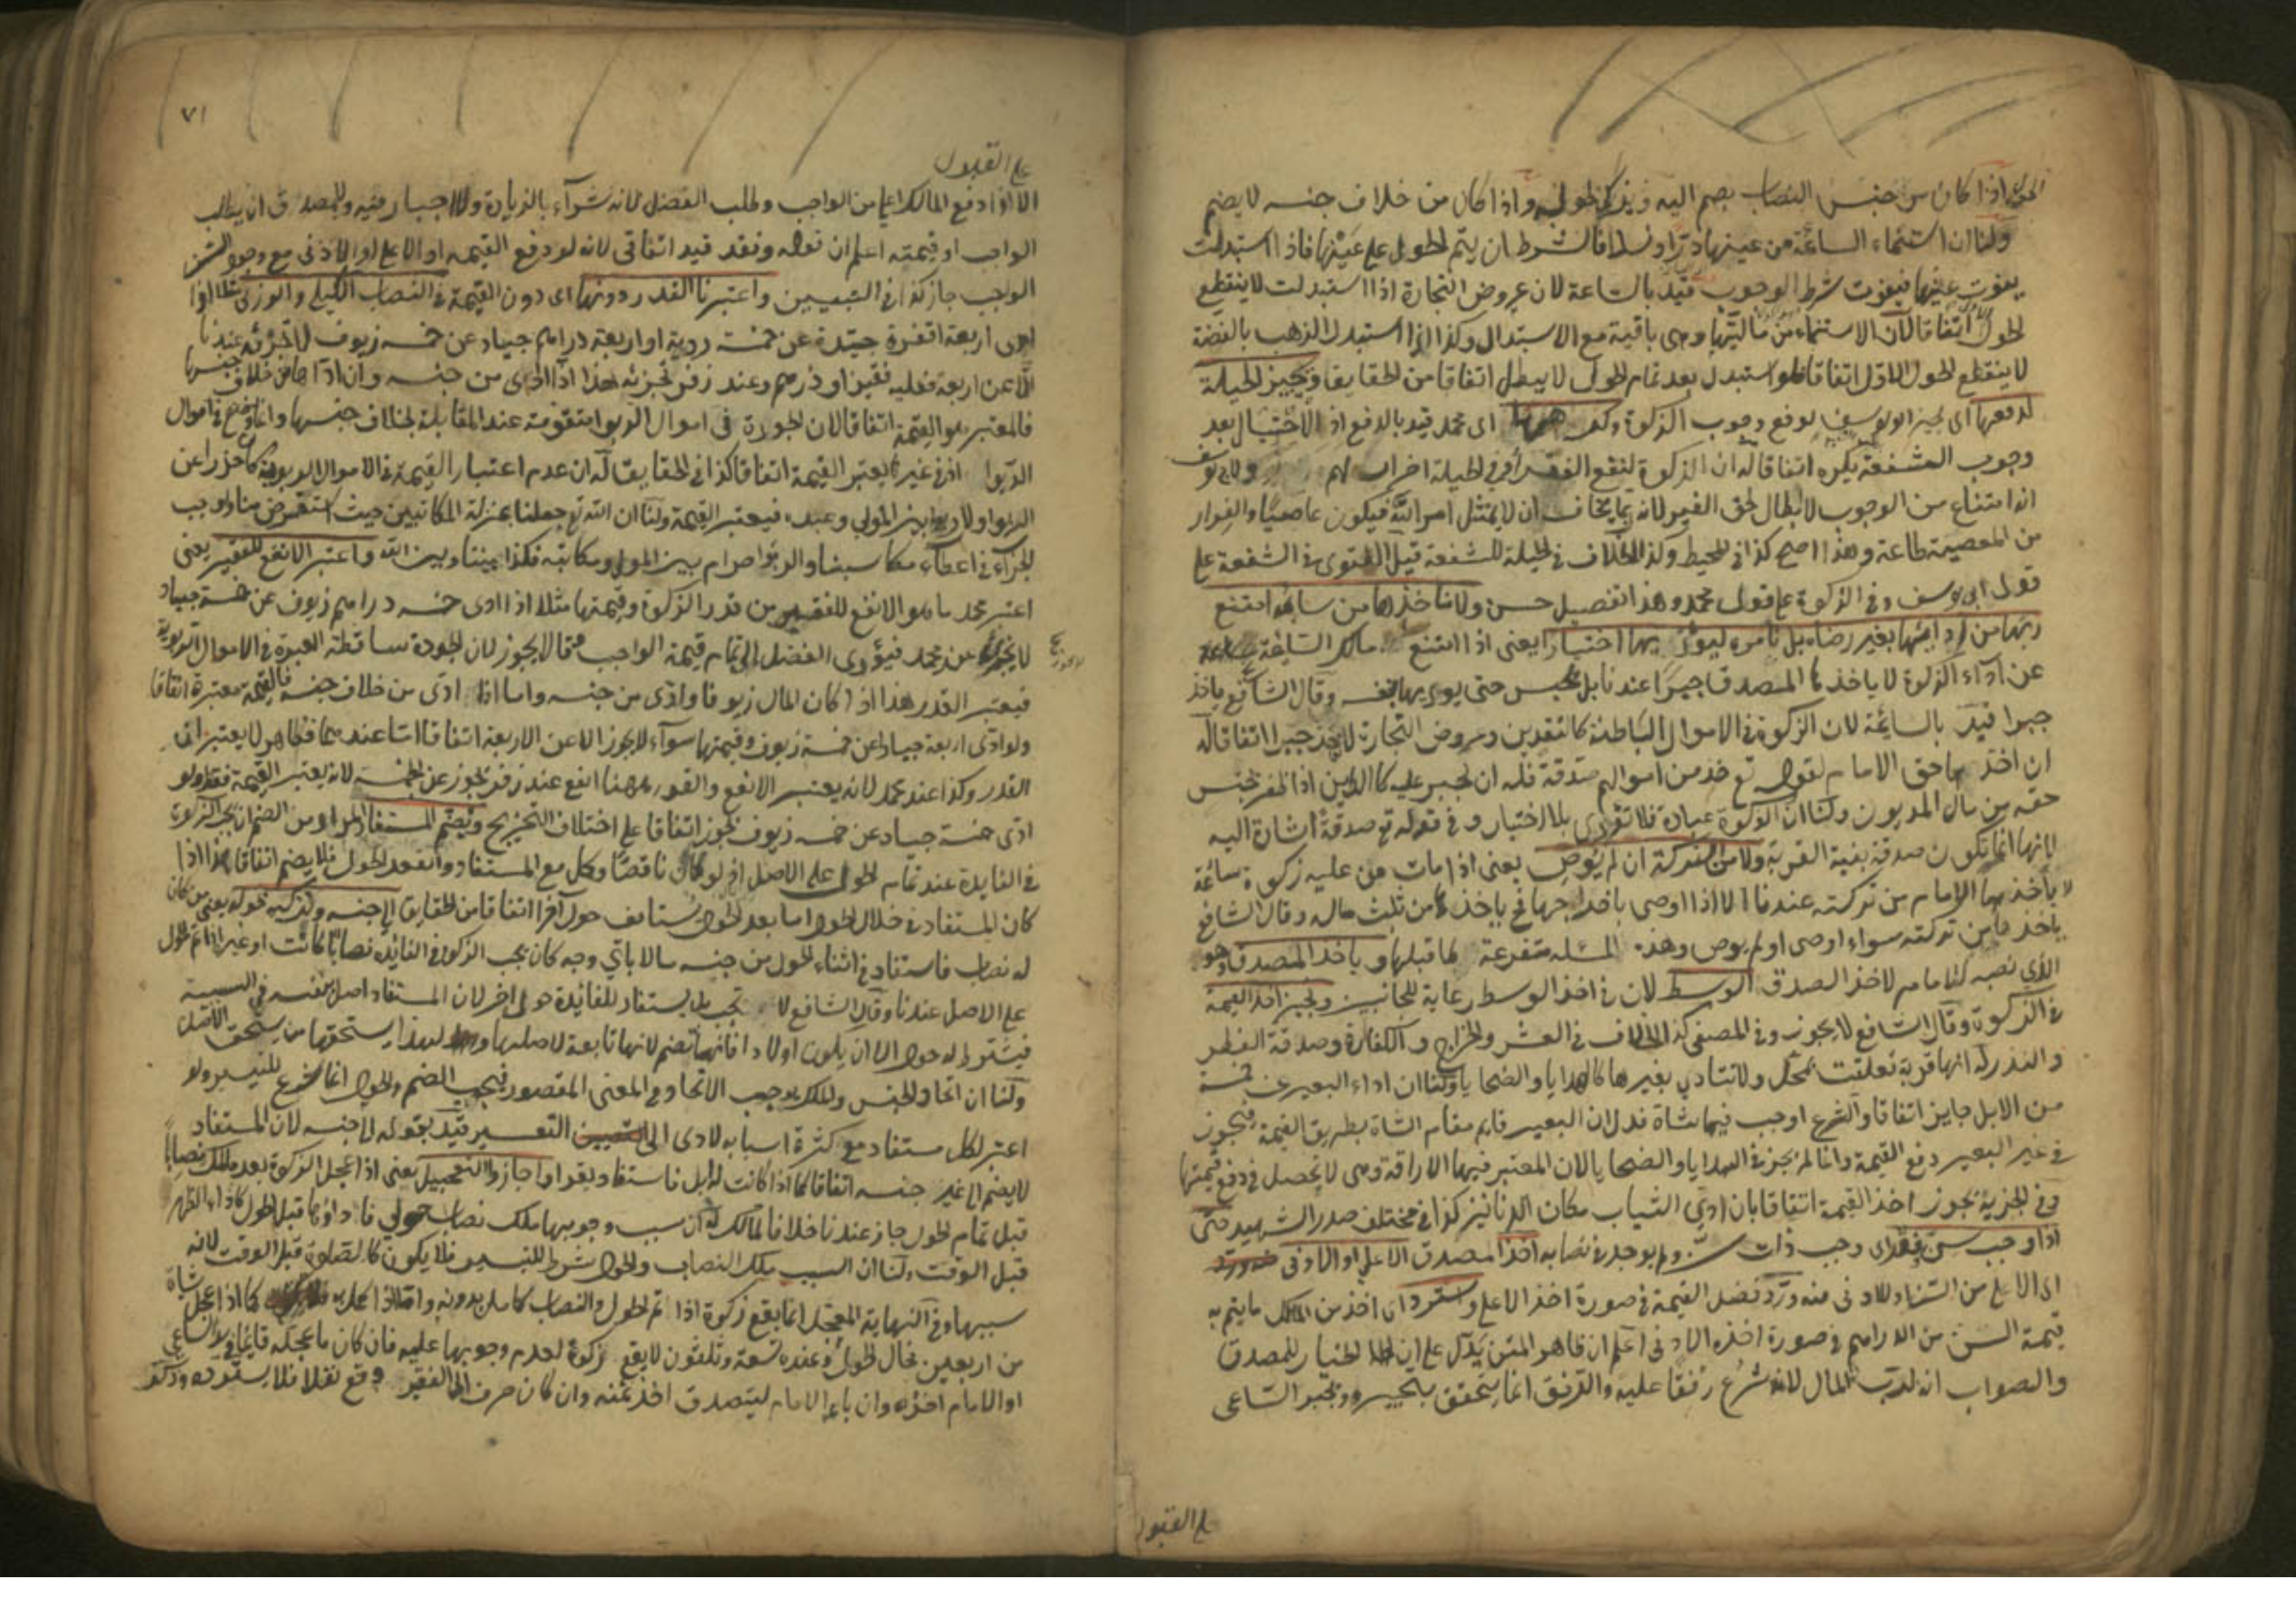 الحول اذا كان من جنس النصاب يضم اليه ويزكى بحوله واذا كان من خلاف جنسه لا يضم
ولنا ان استنماء السائمة من عينها درا ونسلا فالشرط ان يتم الحول على عينها فاذا استبدلت
يفوت عينها فيفوت شرط الوجوب قيد بالسائمة لان عروض التجارة اذا استبدلت لا ينقطع
الحول اتفاقا لان الاستنماء من ماليتها وهى باقية مع الاستبدال وكذا اذا استبدل الذهب بالفضة
لا ينقطع الحول الاول اتفاقا فلو استبدل بعد تمام الحول لا يبطل اتفاقا من الحقايق ويجيز الحيلة
لدفعها اى يجيز ابو يوسف لدفع وجوب الزكوة وكرهها اى محمد قيد بالدفع اذ الاحتيال بعد
وجوب الشفعة يكره اتفاقا له ان الزكوة لنفع الفقراء وفى الحيلة اضرار لهم ولابى يوسف
انه امتناع من الوجوب لا ابطال لحق الغير لانه ربما يخاف ان لا يمتثل امر الله فيكون عاصيا والفرار
من المعصية طاعة وهذا اصح كذا فى المحيط وكذا الخلاف فى الحيلة للشفعة قيل الفتوى فى الشفعة على
قول ابى يوسف وفى الزكوة على قول محمد وهذا تفصيل حسن ولا نأخذها من سايمة امتنع
ربها من ادائها بغير رضاه بل نأمره ليؤدى بها اختيارا يعنى اذا امتنع مالك السايمة
عن اداء الزكوة لا ياخذها المصدق جبرا عندنا بل يحبس حتى يودى بها بنفسه وقال الشافعى ياخذ
جبرا قيد بالسايمة لان الزكوة فى الاموال الباطنة كالنقدين وعروض التجارة لا يؤخذ جبرا اتفاقا له
ان اخذها حق الامام لقوله تع خذ من اموالهم صدقة فله ان يجبر عليه كالدين اذا ظفر بجنس
حقه من مال المديون ولنا ان الزكوة عبادة فلا تؤدى بلا اختيار وفى قوله تع صدقة اشارة اليه
لانها انما تكون صدقة بنية القربة ولا من التركة ان لم يوص يعنى اذا مات من عليه زكوة سائمة
لا ياخذها الامام من تركته عندنا الا اذا اوصى باخراجها فح ياخذها من ثلث ماله وقال الشافعى
ياخذها من تركته سواء اوصى او لم يوص وهذه المسئلة متفرعة لما قبلها وياخذ المصدق وهو
الذى نصبه الامام لاخذ الصدق الوسط لان فى اخذ الوسط رعاية للجانبين ونجيز اخذ القيمة
فى الزكوة وقال الشافعى لا يجوز وفى المصفى كذا الخلاف فى العشر والخراج والكفارة وصدقة الفطر
والنذر له انها قربة تعلقت بمحل ولا تتادى بغيرها كالهدايا والضحايا ولنا ان اداء البعير عن خمسة
من الابل جايز اتفاقا والشرع اوجب فيها شاة فدل ان البعير قايم مقام الشاة بطريق القيمة فيجوز
فى غير البعير دفع القيمة وانما لم يجز فى الهدايا والضحايا لان المعتبر فيها الاراقة وهى لا تحصل فى دفع قيمتها
وفى الجزية يجوز اخذ القيمة اتفاقا بان ادى الثياب مكان الدنانير كذا فى مختلف صدر الشهيد حتى
اذا وجب سن فقد اى وجب ذات سن ولم يوجد فى نصابه اخذ المصدق الاعلى او الادنى
اى الاعلى من السن او الادنى منه ورد فضل القيمة فى صورة اخذ الاعلى واسترد اى اخذ من المالك ما يتم به
قيمة السن من الدراهم فى صورة اخذه الادنى اعلم ان ظاهر المتن يدل على ان الخيار للمصدق
والصواب انه لرب المال لانه شرع رفقا عليه والترفق انما يتحقق بتخييره ويجبر الساعى
على القبول
٧١
على القبول
الا اذا دفع المالك اعلى من الواجب وطلب الفضل لانه شراء بالزيادة ولا اجبار فيه وللمصدق ان يطلب
الواجب او قيمته اعلم ان قوله وفقد قيد اتفاقى لانه لو دفع القيمة او الاعلى او الادنى مع وجود السن
الواجب جاز كذا فى التبيين واعتبرنا القدر دونها اى دون القيمة فى النصاب الكيلى والوزنى
ادى اربعة اقفزة جيدة عن خمسة ردية او اربعة دراهم جياد عن خمسة زيوف لا تجزئه عندنا
الا عن اربعة فعليه قفيز او درهم وعند زفر تجزئه هذا اذا ادى من جنسه وان اداها من خلاف جنسها
فالمعتبر هو القيمة اتفاقا لان الجودة فى اموال الربوا متقومة عند المقابلة بخلاف جنسها وانما وضع فى اموال
الربوا اذ فى غيرها يعتبر القيمة اتفاقا كذا فى الحقايق له ان عدم اعتبار القيمة فى الاموال الربوية كان حذرا عن
الربوا ولا ربوا بين المولى وعبده فيعتبر القيمة ولنا ان الله تع جعلنا بمنزلة المكاتبين حيث استقرض منا واوجب
الجزاء فى اعطاء مكاسبنا والربوا حرام بين المولى ومكاتبه فكذا بيننا وبين الله واعتبر الانفع للفقير يعنى
اعتبر محمد ما هو الانفع للفقير من قدر الزكوة وقيمتها مثلا اذا ادى خمسة دراهم زيوف عن خمسة جياد
لا يجوز عند محمد فيؤدى الفضل الى تمام قيمة الواجب وقالا يجوز لان الجودة ساقطة العبرة فى الاموال الربوية
فيعتبر القدر هذا اذا كان المال زيوفا وادى من جنسه واما اذا ادى من خلاف جنسه فالقيمة معتبرة اتفاقا
ولو ادى اربعة جياد عن خمسة زيوف وقيمتها سواء لا يجوز الا عن الاربعة اتفاقا اما عندهما فظاهر لا يعتبر الا
القدر وكذا عند محمد لانه يعتبر الانفع والقدر ههنا انفع عند زفر يجوز عن الخمسة لانه يعتبر القيمة فقط ولو
ادى خمسة جياد عن خمسة زيوف يجوز اتفاقا على اختلاف التخريج ويضم المستفاد المراد من الضم ان يجب الزكوة
فى الفايدة عند تمام الحول على الاصل اذ لو كان ناقصا وكمل مع المستفاد وانعقد الحول فلا يضم اتفاقا هذا اذا
كان المستفاد فى خلال الحول اما بعد الحول يستانف حول آخر اتفاقا من الحقايق الى جنسه ويزكيه بحوله يعنى من كان
له نصاب فاستفاد فى اثناء الحول من جنسه مالا باى وجه كان يجب الزكوة فى الفائدة نصابا كانت او غير اذا تم الحول
على الاصل عندنا وقال الشافعى لا تجب بل يستفاد للفائدة حولا اخر لان المستفاد اصل بنفسه فى السببية
فيشترط له حول الا ان يكون اولادا فانها تضم لانها تابعة لاصلها ولهذا يستحقها من يستحق الاصل
ولنا ان اتحاد الجنس والملك يوجب الاتحاد فى المعنى المقصود فيجب الضم والحول انما شرع للتيسير ولو
اعتبر لكل مستفاد مع كثرة اسبابه لادى الى التعسير قيد بقوله الى جنسه لان المستفاد
لا يضم الى غير جنسه اتفاقا كما اذا كانت له ابل فاستفاد بقرا واجازوا التعجيل يعنى اذا عجل الزكوة بعد ملك نصابا
قبل تمام الحول جاز عندنا خلافا لمالك له ان سبب وجوبها ملك نصاب حولى فاداؤها قبل الحول كاداء الظهر
قبل الوقت ولنا ان السبب ملك النصاب والحول شرط للتيسير فلا يكون كالصلوة قبل الوقت لانه
سببها وفى النهاية المعجل انما يقع زكوة اذا تم الحول والنصاب كامل بدونه واما اذا كمل به كما اذا عجل شاة
من اربعين فحال الحول وعنده تسعة وثلثون لا يقع زكوة لعدم وجوبها عليه فان كان ما عجله قايما فى يد الساعى
او الامام اخذه وان باعه الامام ليتصدق اخذ ثمنه وان كان صرف الى الفقير وقع نفلا فلا يسترده وذكر